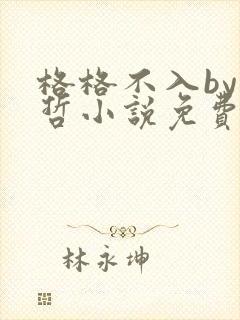 格格不入by
哲小說免費
林永坤